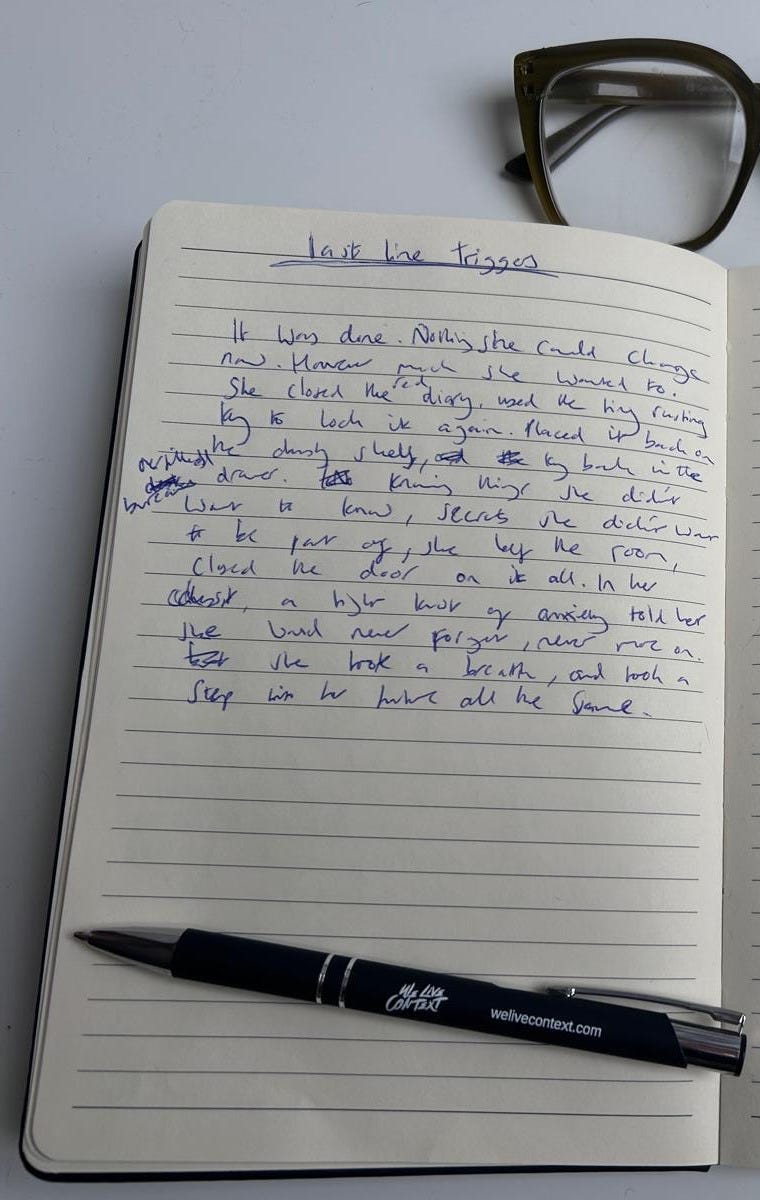 last line triggers
It was done. Nothing she could change
now. However much she wanted to.
She closed the red diary, used the tiny rusting
key to lock it again. Placed it back on
the dusty shelf, key back in the
drawer. Knowing things she didn't
bureau
want to know, secrets she didn't want
to be part of, she left the room,
closed the door on it all. In her
a tight knot of anxiety told her
she would never forget, never move on.
she took a breath, and took a
step into her future all the same.
WE LIVE
CONTEXT
welivecontext.com